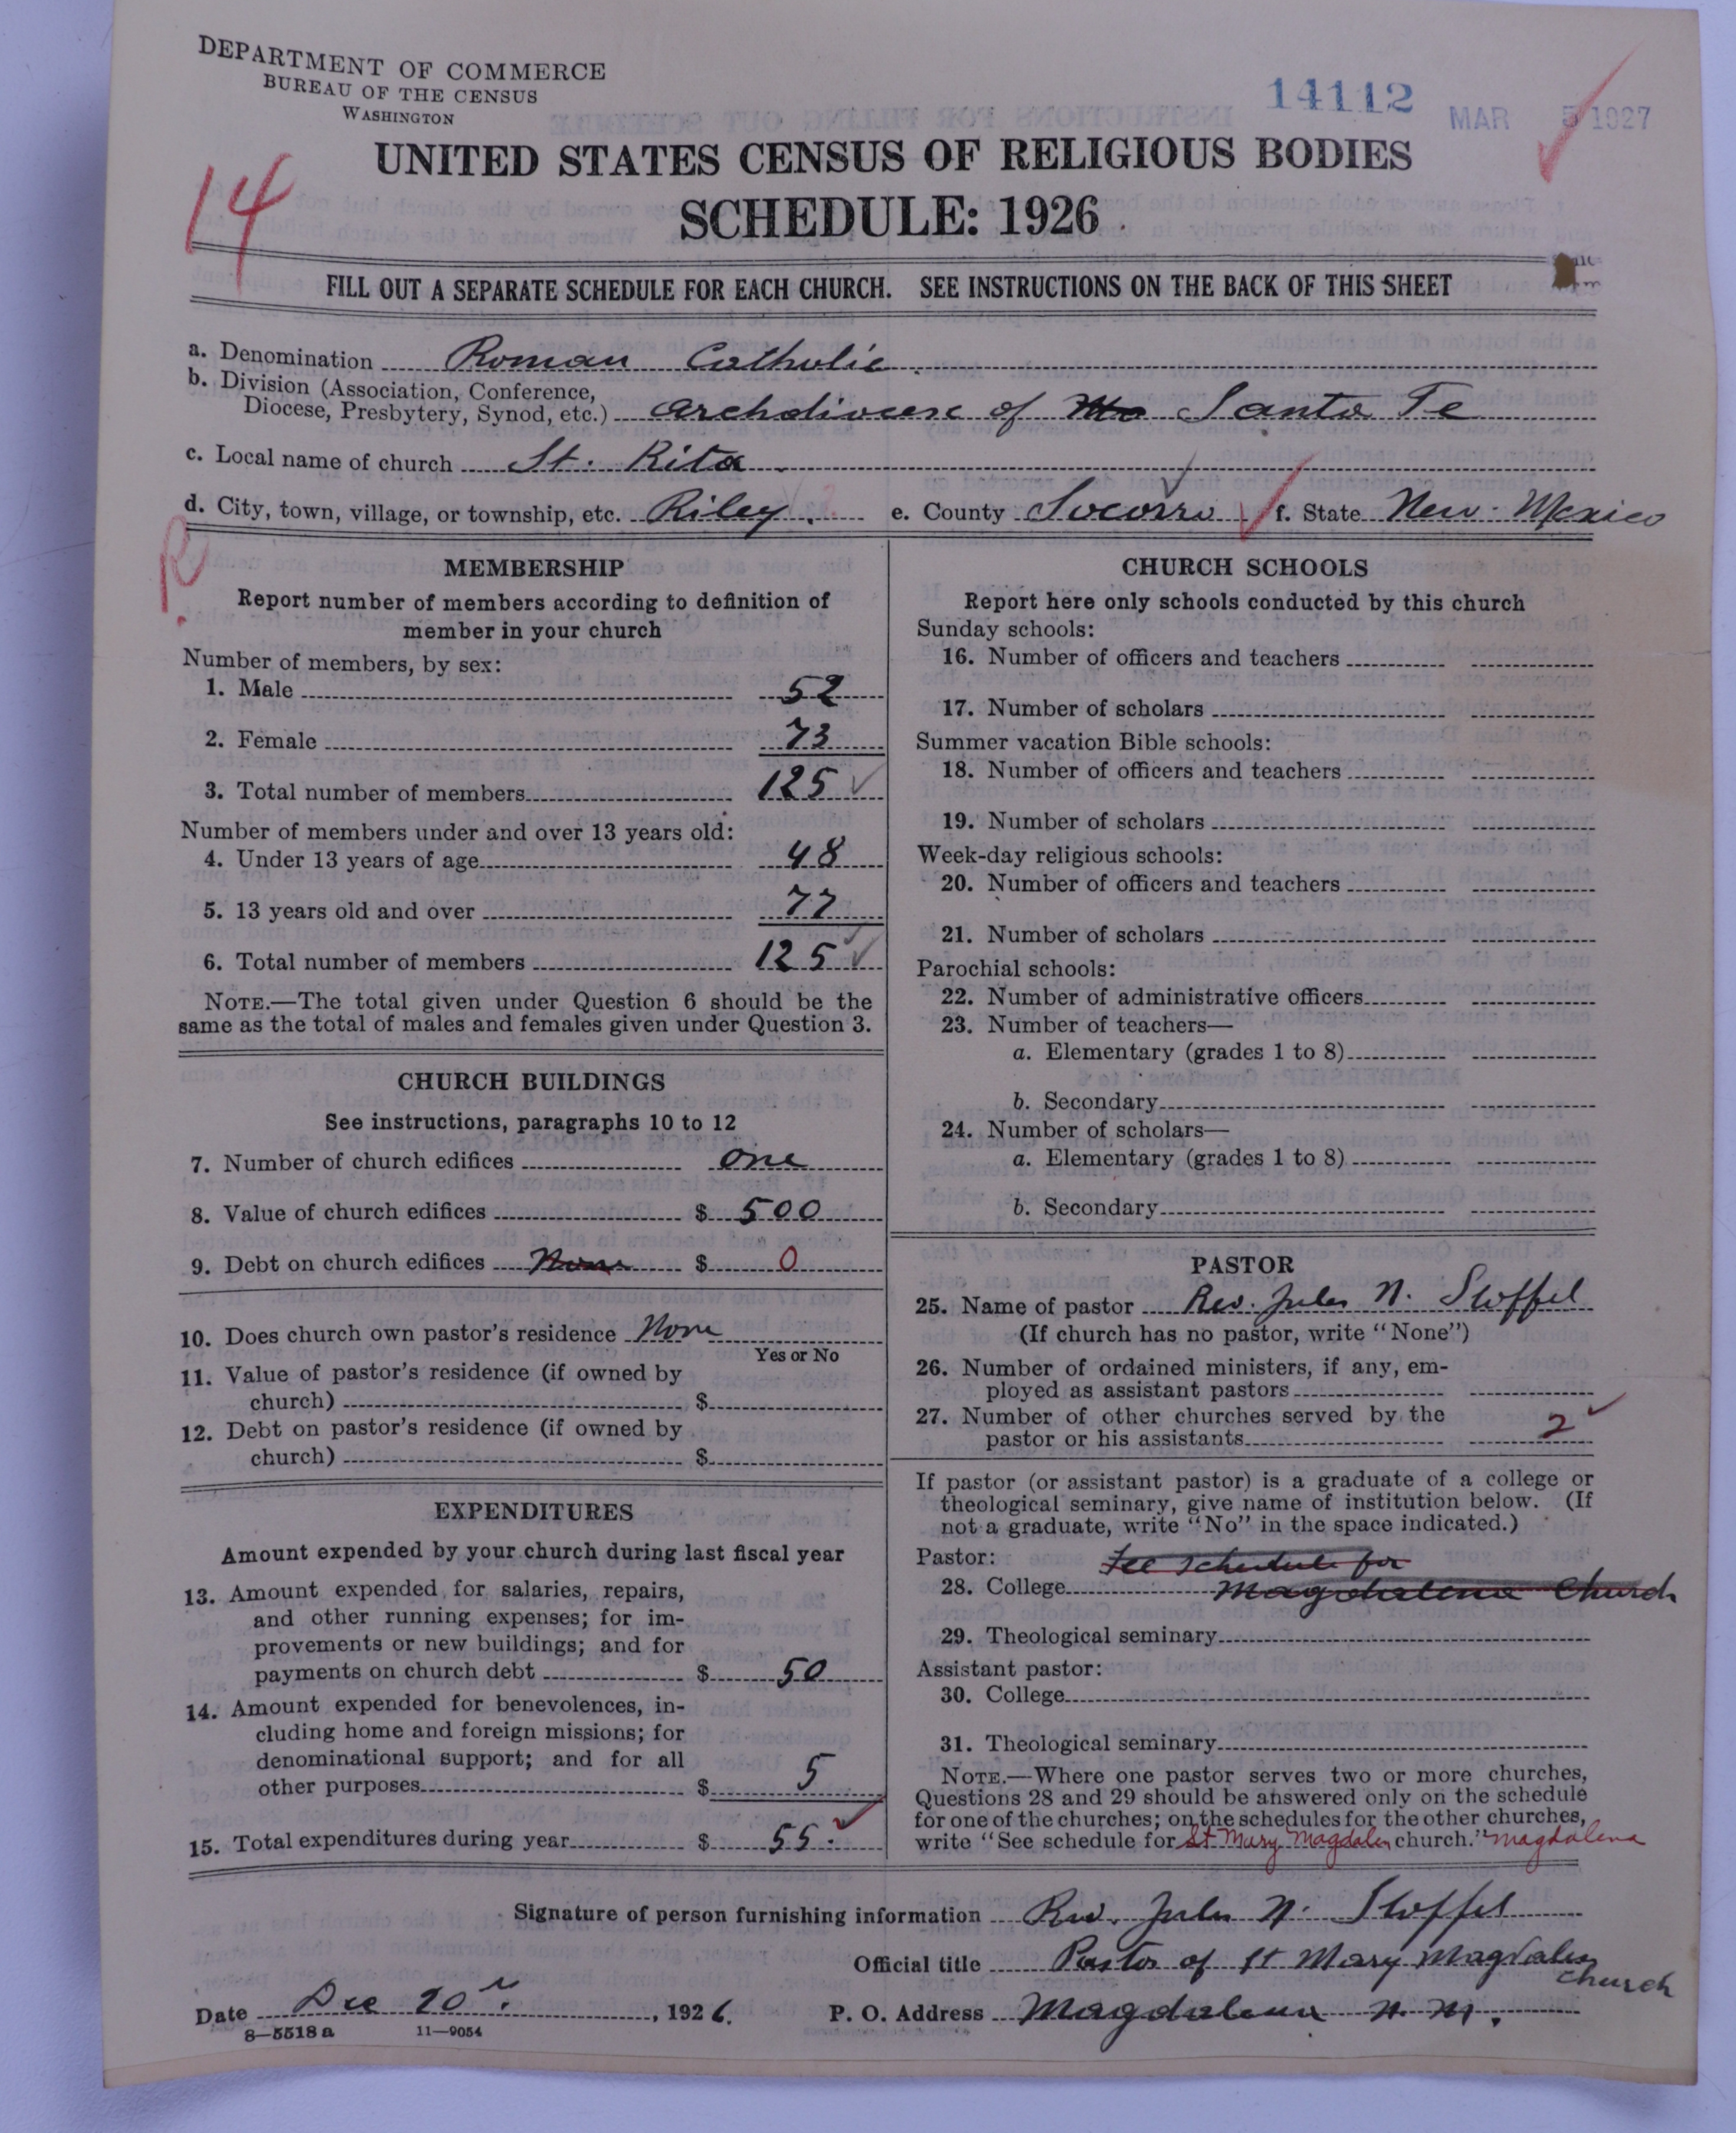 DEPARTMENT OF COMMERCE
BUREAU OF THE CENSUS
WASHINGTON
14112
MAR 5 1927
UNITED STATES CENSUS OF RELIGIOUS BODIES
14
SCHEDULE: 1926
FILL OUT A SEPARATE SCHEDULE FOR EACH CHURCH. SEE INSTRUCTIONS ON THE BACK OF THIS SHEET
a. Denomination Roman Catholic.
b. Division (Association, Conference,
Diocese, Presbytery, Synod, etc.) Archdiocese of Santa Fe
c. Local name of church St. Rita.
d. City, town, village, or township, etc. Riley. e. County Socorro f. State New Mexico
R
MEMBERSHIP
Report number of members according to definition of
member in your church
Number of members, by sex:
1. Male 52
2. Female 73
3. Total number of members 125
Number of members under and over 13 years old:
4. Under 13 years of age 48
5. 13 years old and over 77
6. Total number of members 125
NOTE.—The total given under Question 6 should be the
same as the total of males and females given under Question 3.
CHURCH BUILDINGS
See instructions, paragraphs 10 to 12
7. Number of church edifices one
8. Value of church edifices $ 500
9. Debt on church edifices None $ 0
10. Does church own pastor's residence None
Yes or No
11. Value of pastor's residence (if owned by
church) $
12. Debt on pastor's residence (if owned by
church) $
EXPENDITURES
Amount expended by your church during last fiscal year
13. Amount expended for salaries, repairs,
and other running expenses; for im-
provements or new buildings; and for
payments on church debt $ 50
14. Amount expended for benevolences, in-
cluding home and foreign missions; for
denominational support; and for all
other purposes $ 5
15. Total expenditures during year $ 55.
CHURCH SCHOOLS
Report here only schools conducted by this church
Sunday schools:
16. Number of officers and teachers
17. Number of scholars
Summer vacation Bible schools:
18. Number of officers and teachers
19. Number of scholars
Week-day religious schools:
20. Number of officers and teachers
21. Number of scholars
Parochial schools:
22. Number of administrative officers
23. Number of teachers—
a. Elementary (grades 1 to 8)
b. Secondary
24. Number of scholars—
a. Elementary (grades 1 to 8)
b. Secondary
PASTOR
25. Name of pastor Rev. Jules N. Stoffel
(If church has no pastor, write "None")
26. Number of ordained ministers, if any, em-
ployed as assistant pastors
27. Number of other churches served by the
pastor or his assistants 2
If pastor (or assistant pastor) is a graduate of a college or
theological seminary, give name of institution below. (If
not a graduate, write "No" in the space indicated.)
Pastor: See schedule for
28. College Magdalena Church
29. Theological seminary
Assistant pastor:
30. College
31. Theological seminary
NOTE.—Where one pastor serves two or more churches,
Questions 28 and 29 should be answered only on the schedule
for one of the churches; on the schedules for the other churches,
write "See schedule for St Mary Magdalen church." Magdalena
Signature of person furnishing information Rev. Jules N. Stoffel
Official title Pastor of St Mary Magdalen
church
Date Dec 20, 1926. P. O. Address Magdalena N. M.
8—5518 a 11—9054